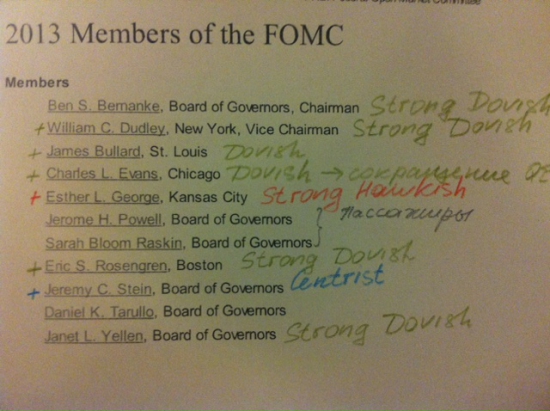 Open Market Committee
2013 Members of the FOMC
Members
Ben S. Bernanke, Board of Governors, Chairman Strong Dovish
+ William C. Dudley, New York, Vice Chairman Strong Dovish
+ James Bullard, St. Louis Dovish
+ Charles L. Evans, Chicago Dovish → сокращение QE
+ Esther L. George, Kansas City Strong Hawkish
Jerome H. Powell, Board of Governors пассажиры
Sarah Bloom Raskin, Board of Governors
+ Eric S. Rosengren, Boston Strong Dovish
+ Jeremy C. Stein, Board of Governors Centrist
Daniel K. Tarullo, Board of Governors
Janet L. Yellen, Board of Governors Strong Dovish